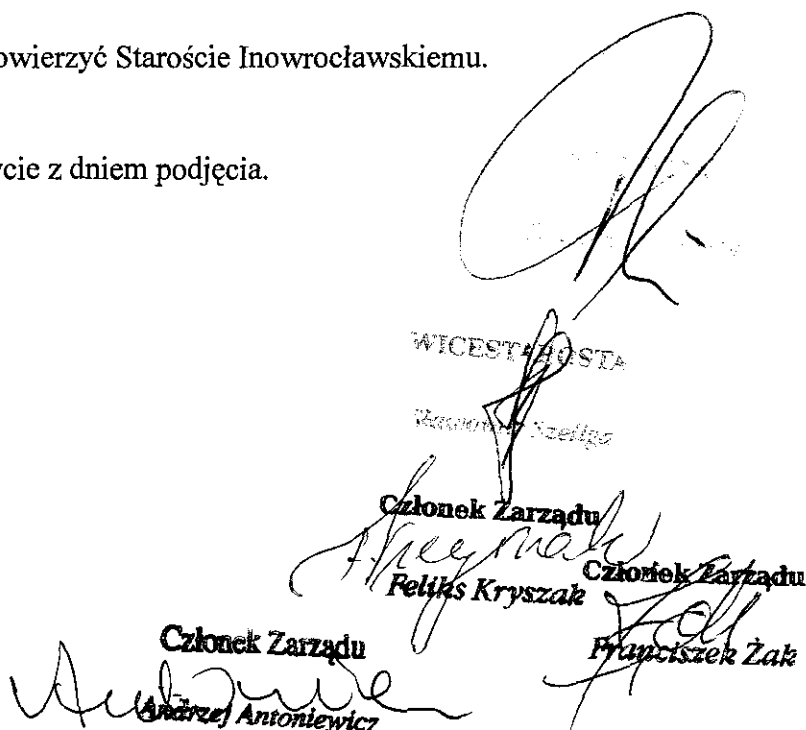 owierzyć Staroście Inowrocławskiemu.
ycie z dniem podjęcia.
WICESTAROSTA
Szeliga
Członek Zarządu
Feliks Kryszak
Członek Zarządu
Franciszek Żak
Członek Zarządu
Andrzej Antoniewicz